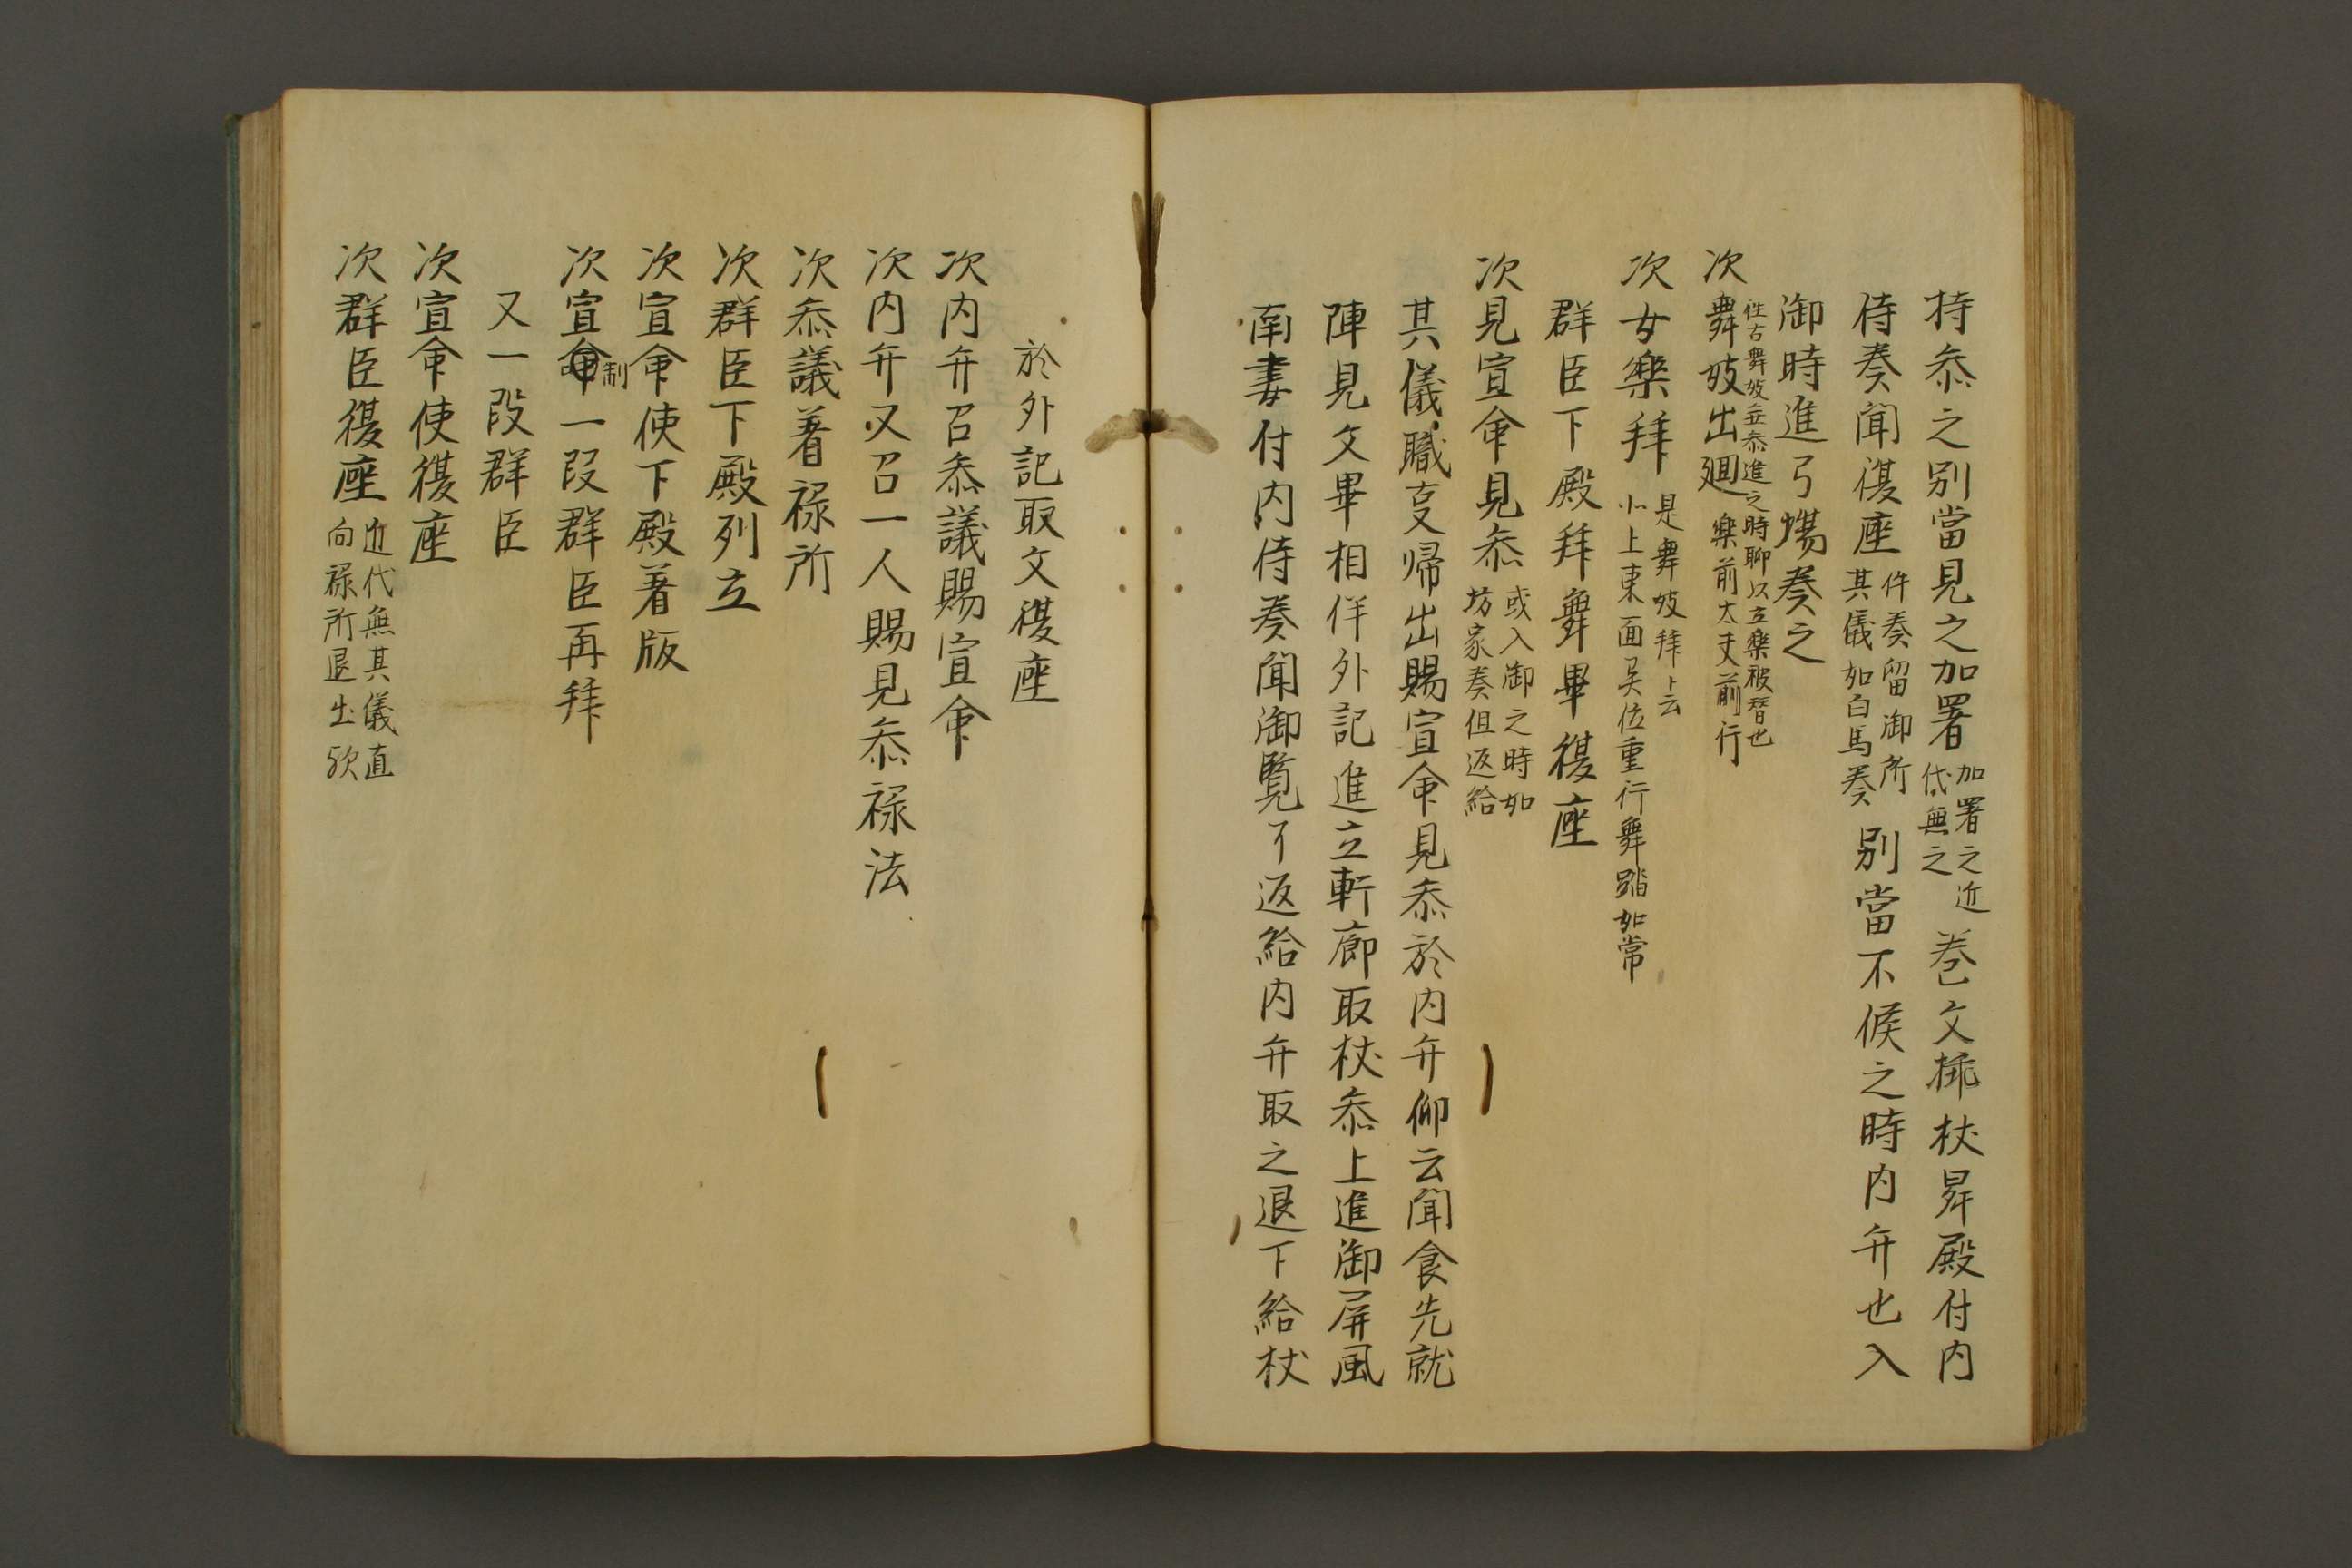 持参之別當見之加署加署之近代無之巻文挿杖昇殿付内
侍奏聞復座件奏留御所其儀如白馬奏別當不候之時内弁也入
御時進弓場奏之
次舞妓出廻樂前大夫前行
往古舞妓並参進之時聊以立樂被替也
次女樂拜是舞妓拜々云北上東面異位重行舞踏如常
群臣下殿拜舞畢復座
次見宣命見参或入御之時如坊家奏但返給
其儀職叓帰出賜宣命見参於内弁仰云聞食先就
陣見文畢相伴外記進立軒廊取杖参上進御屏風
南妻付内侍奏聞御覧了返給内弁取之退下給杖
於外記取文復座
次内弁召参議賜宣命
次内弁又召一人賜見参禄法
次参議着禄所
次群臣下殿列立
次宣命使下殿着版
次宣制一段群臣再拜
又一段群臣
次宣命使復座
次群臣復座近代無其儀直向禄所退出歟